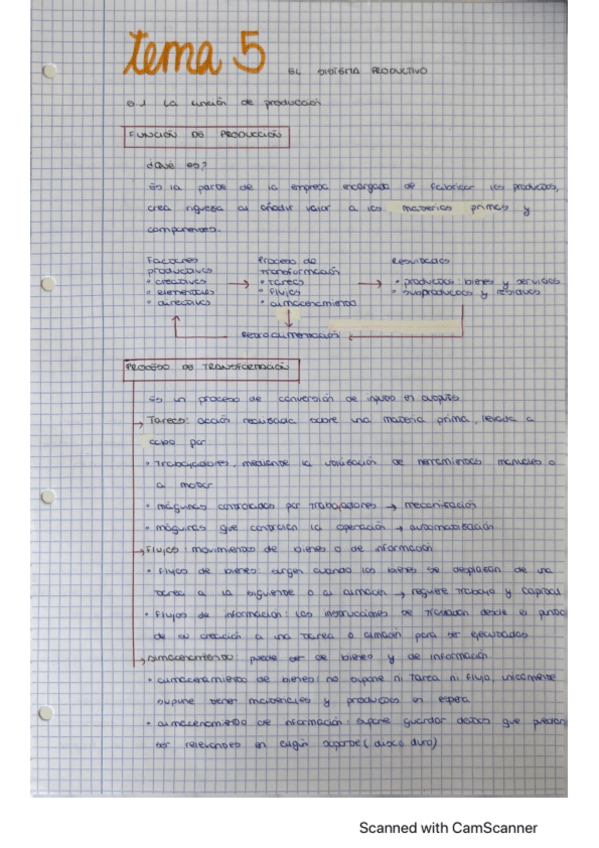 tema 5 EL SISTEMA PRODUCTIVO
5.1 La función de producción
FUNCIÓN DE PRODUCCIÓN
¿Qué es?
Es la parte de la empresa encargada de fabricar los productos,
crea riqueza al añadir valor a las materias primas y
componentes.
Factores productivos
• creativos
• elementales
• directivos
Proceso de transformación
• tareas
• flujos
• almacenamiento
Resultados
• productos: bienes y servicios
• subproductos y residuos
Retroalimentación
PROCESO DE TRANSFORMACIÓN
Es un proceso de conversión de inputs en outputs
Tareas: acción realizada sobre una materia prima, llevada a
cabo por
• Trabajadores, mediante la utilización de herramientas manuales o
a motor
• máquinas controladas por trabajadores → mecanización
• máquinas que controlan la operación → automatización
Flujos: movimientos de bienes o de información
• flujos de bienes: surgen cuando los bienes se desplazan de una
tarea a la siguiente o al almacén → requiere trabajo y capital
• flujos de información: las instrucciones se trasladan desde el punto
de su creación a una tarea o almacén para ser ejecutadas
Almacenamiento: puede ser de bienes y de información
• almacenamiento de bienes: no supone ni tarea ni flujo, únicamente
supone tener materiales y productos en espera
• almacenamiento de información: supone guardar datos que puedan
ser relevantes en algún soporte (disco duro)
Scanned with CamScanner